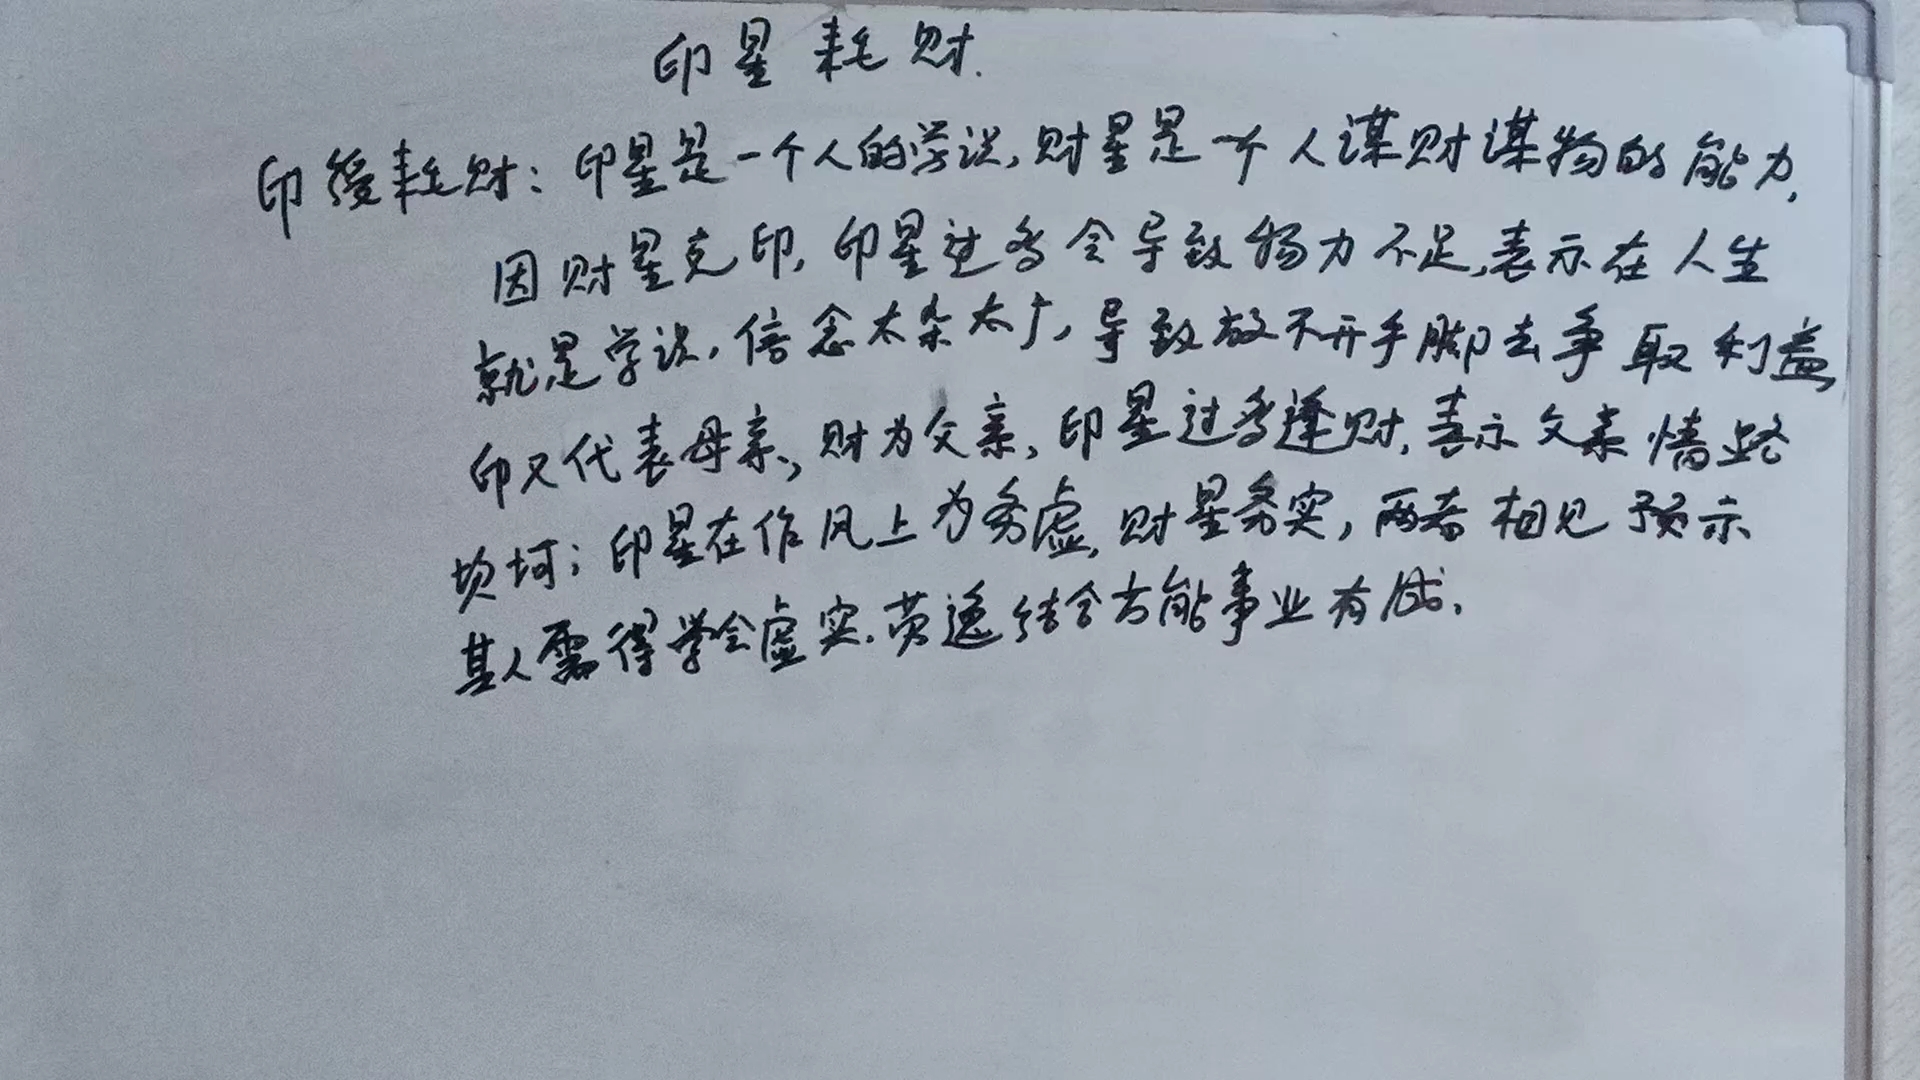 印星耗财.
印绶耗财:印星是一个人的学识,财星是一个人谋财谋物的能力,
因财星克印,印星过多会导致物力不足,表示在人生
就是学识,信念太杂太广,导致放不开手脚去争取利益
印又代表母亲,财为父亲,印星过多逢财,表示父亲情路
坎坷;印星在作风上为务虚,财星务实,两者相见预示
其人需得学会虚实.劳逸结合方能事业有成.